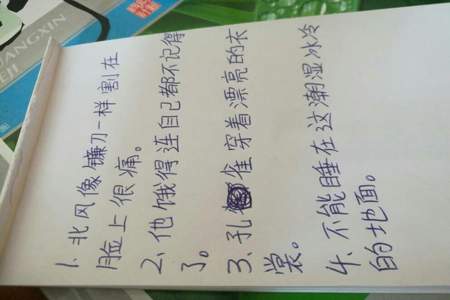 1、北风像镰刀一样割在
脸上很痛。
2、他饿得连自己都不记得
了。
3、孔雀穿着漂亮的衣
裳。
4、不能睡在这潮湿冰冷
的地面。